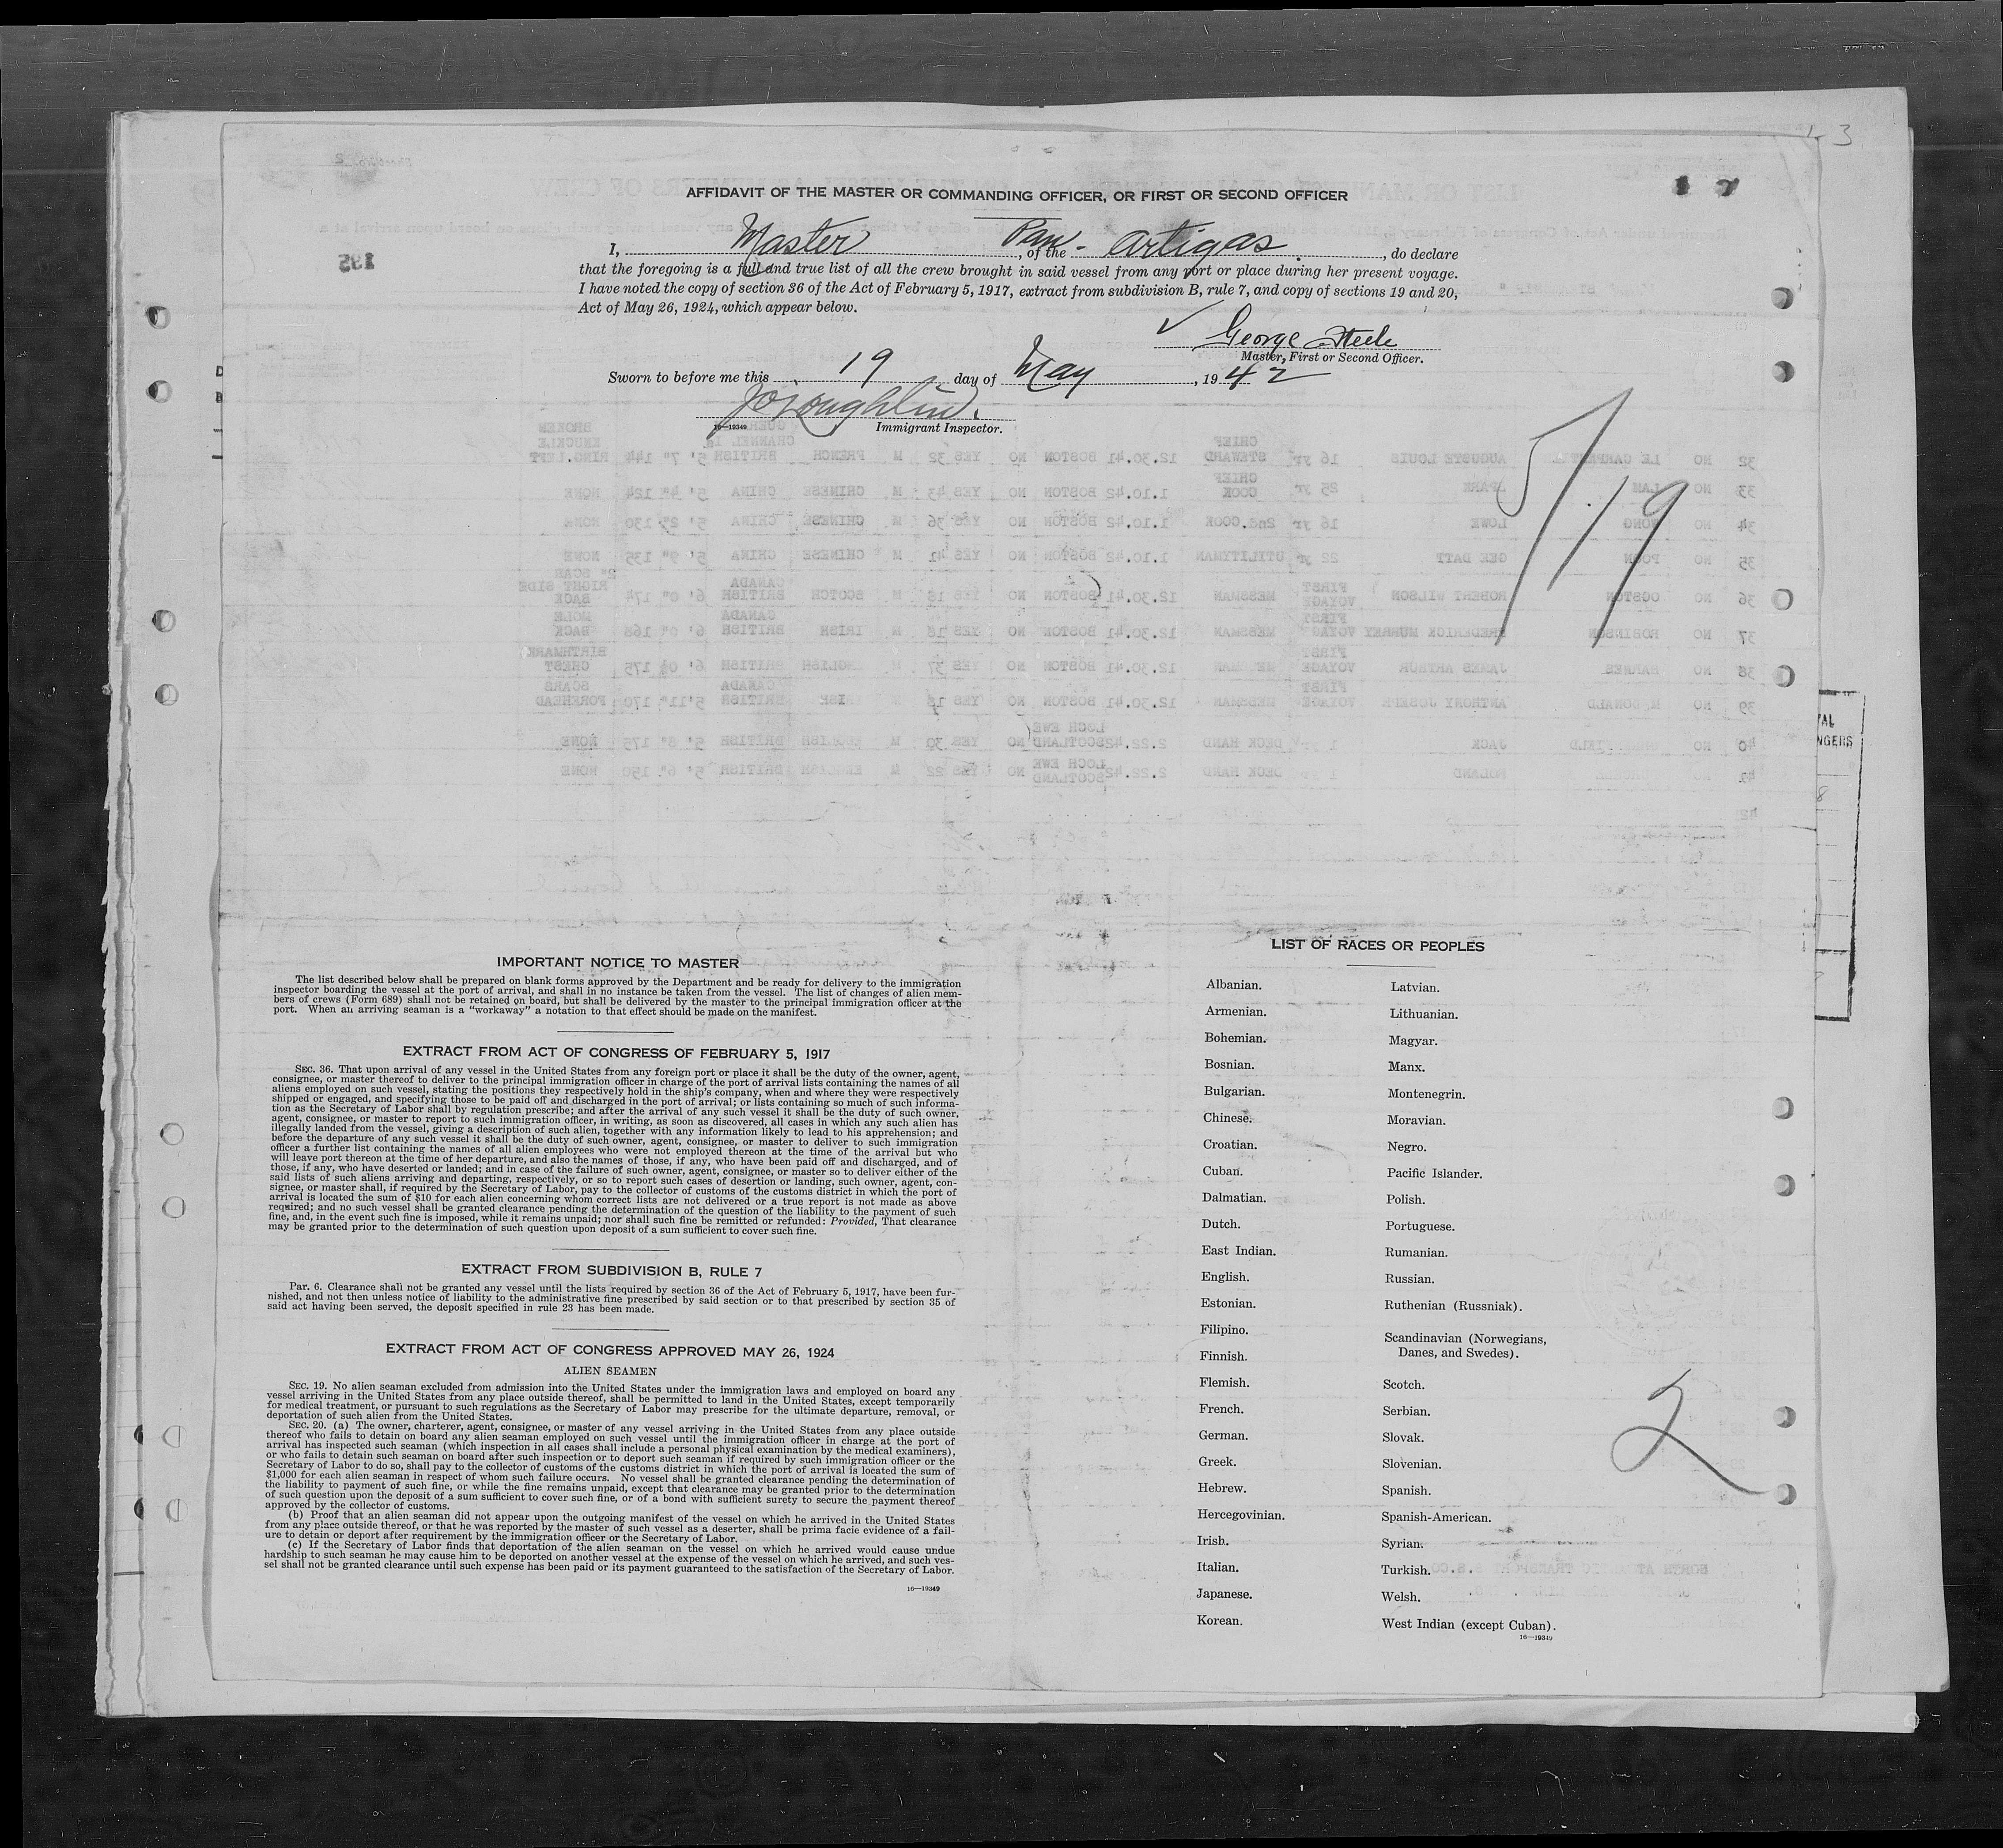 3
AFFIDAVIT OF THE MASTER OR COMMANDING OFFICER, OR FIRST OR SECOND OFFICER
I, Master, of the Pan-Artigas, do declare
that the foregoing is a full and true list of all the crew brought in said vessel from any port or place during her present voyage.
I have noted the copy of section 36 of the Act of February 5, 1917, extract from subdivision B, rule 7, and copy of sections 19 and 20,
Act of May 26, 1924, which appear below.
George Steele
Master, First or Second Officer.
Sworn to before me this 19 day of May, 1942
16—19349 Immigrant Inspector.
5/19
IMPORTANT NOTICE TO MASTER
The list described below shall be prepared on blank forms approved by the Department and be ready for delivery to the immigration
inspector boarding the vessel at the port of arrival, and shall in no instance be taken from the vessel. The list of changes of alien mem-
bers of crews (Form 689) shall not be retained on board, but shall be delivered by the master to the principal immigration officer at the
port. When an arriving seaman is a "workaway" a notation to that effect should be made on the manifest.
EXTRACT FROM ACT OF CONGRESS OF FEBRUARY 5, 1917
SEC. 36. That upon arrival of any vessel in the United States from any foreign port or place it shall be the duty of the owner, agent,
consignee, or master thereof to deliver to the principal immigration officer in charge of the port of arrival lists containing the names of all
aliens employed on such vessel, stating the positions they respectively hold in the ship's company, when and where they were respectively
shipped or engaged, and specifying those to be paid off and discharged in the port of arrival; or lists containing so much of such informa-
tion as the Secretary of Labor shall by regulation prescribe; and after the arrival of any such vessel it shall be the duty of such owner,
agent, consignee, or master to report to such immigration officer, in writing, as soon as discovered, all cases in which any such alien has
illegally landed from the vessel, giving a description of such alien, together with any information likely to lead to his apprehension; and
before the departure of any such vessel it shall be the duty of such owner, agent, consignee, or master to deliver to such immigration
officer a further list containing the names of all alien employees who were not employed thereon at the time of the arrival but who
will leave port thereon at the time of her departure, and also the names of those, if any, who have been paid off and discharged, and of
those, if any, who have deserted or landed; and in case of the failure of such owner, agent, consignee, or master so to deliver either of the
said lists of such aliens arriving and departing, respectively, or so to report such cases of desertion or landing, such owner, agent, con-
signee, or master shall, if required by the Secretary of Labor, pay to the collector of customs of the customs district in which the port of
arrival is located the sum of $10 for each alien concerning whom correct lists are not delivered or a true report is not made as above
required; and no such vessel shall be granted clearance pending the determination of the question of the liability to the payment of such
fine, and, in the event such fine is imposed, while it remains unpaid; nor shall such fine be remitted or refunded: Provided, That clearance
may be granted prior to the determination of such question upon deposit of a sum sufficient to cover such fine.
EXTRACT FROM SUBDIVISION B, RULE 7
Par. 6. Clearance shall not be granted any vessel until the lists required by section 36 of the Act of February 5, 1917, have been fur-
nished, and not then unless notice of liability to the administrative fine prescribed by said section or to that prescribed by section 35 of
said act having been served, the deposit specified in rule 23 has been made.
EXTRACT FROM ACT OF CONGRESS APPROVED MAY 26, 1924
ALIEN SEAMEN
SEC. 19. No alien seaman excluded from admission into the United States under the immigration laws and employed on board any
vessel arriving in the United States from any place outside thereof, shall be permitted to land in the United States, except temporarily
for medical treatment, or pursuant to such regulations as the Secretary of Labor may prescribe for the ultimate departure, removal, or
deportation of such alien from the United States.
SEC. 20. (a) The owner, charterer, agent, consignee, or master of any vessel arriving in the United States from any place outside
thereof who fails to detain on board any alien seaman employed on such vessel until the immigration officer in charge at the port of
arrival has inspected such seaman (which inspection in all cases shall include a personal physical examination by the medical examiners),
or who fails to detain such seaman on board after such inspection or to deport such seaman if required by such immigration officer or the
Secretary of Labor to do so, shall pay to the collector of customs of the customs district in which the port of arrival is located the sum of
$1,000 for each alien seaman in respect of whom such failure occurs. No vessel shall be granted clearance pending the determination of
the liability to payment of such fine, or while the fine remains unpaid, except that clearance may be granted prior to the determination
of such question upon the deposit of a sum sufficient to cover such fine, or of a bond with sufficient surety to secure the payment thereof
approved by the collector of customs.
(b) Proof that an alien seaman did not appear upon the outgoing manifest of the vessel on which he arrived in the United States
from any place outside thereof, or that he was reported by the master of such vessel as a deserter, shall be prima facie evidence of a fail-
ure to detain or deport after requirement by the immigration officer or the Secretary of Labor.
(c) If the Secretary of Labor finds that deportation of the alien seaman on the vessel on which he arrived would cause undue
hardship to such seaman he may cause him to be deported on another vessel at the expense of the vessel on which he arrived, and such ves-
sel shall not be granted clearance until such expense has been paid or its payment guaranteed to the satisfaction of the Secretary of Labor.
16—19349
LIST OF RACES OR PEOPLES
Albanian.
Armenian.
Bohemian.
Bosnian.
Bulgarian.
Chinese.
Croatian.
Cuban.
Dalmatian.
Dutch.
East Indian.
English.
Estonian.
Filipino.
Finnish.
Flemish.
French.
German.
Greek.
Hebrew.
Hercegovinian.
Irish.
Italian.
Japanese.
Korean.
Latvian.
Lithuanian.
Magyar.
Manx.
Montenegrin.
Moravian.
Negro.
Pacific Islander.
Polish.
Portuguese.
Rumanian.
Russian.
Ruthenian (Russniak).
Scandinavian (Norwegians,
Danes, and Swedes).
Scotch.
Serbian.
Slovak.
Slovenian.
Spanish.
Spanish-American.
Syrian.
Turkish.
Welsh.
West Indian (except Cuban).
16—19349
2